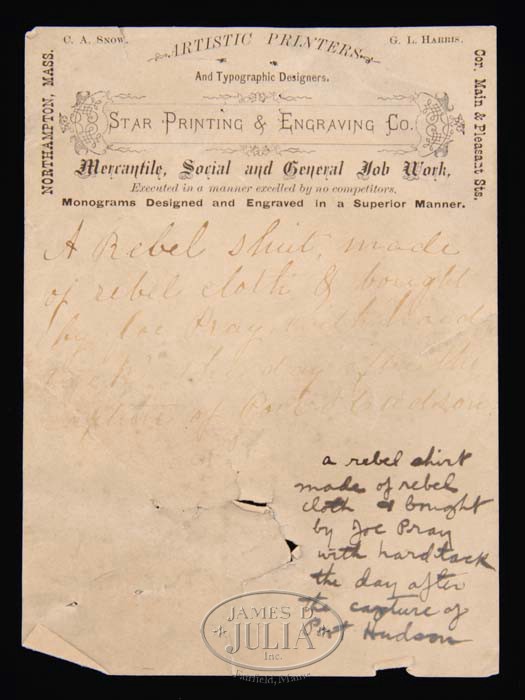 C. A. Snow.
ARTISTIC PRINTERS
G. L. Harris.
And Typographic Designers.
NORTHAMPTON, MASS.
Cor. Main & Pleasant Sts.
Star Printing & Engraving Co.
Mercantile, Social and General Job Work,
Executed in a manner excelled by no competitors.
Monograms Designed and Engraved in a Superior Manner.
A Rebel shirt, made
of rebel cloth & bought
by Joe Pray with hard
tack the day after the
capture of Port Hudson.
a rebel shirt
made of rebel
cloth & bought
by Joe Pray
with hardtack
the day after
the capture of
Port Hudson
JAMES D.
JULIA
Inc.
Fairfield, Maine